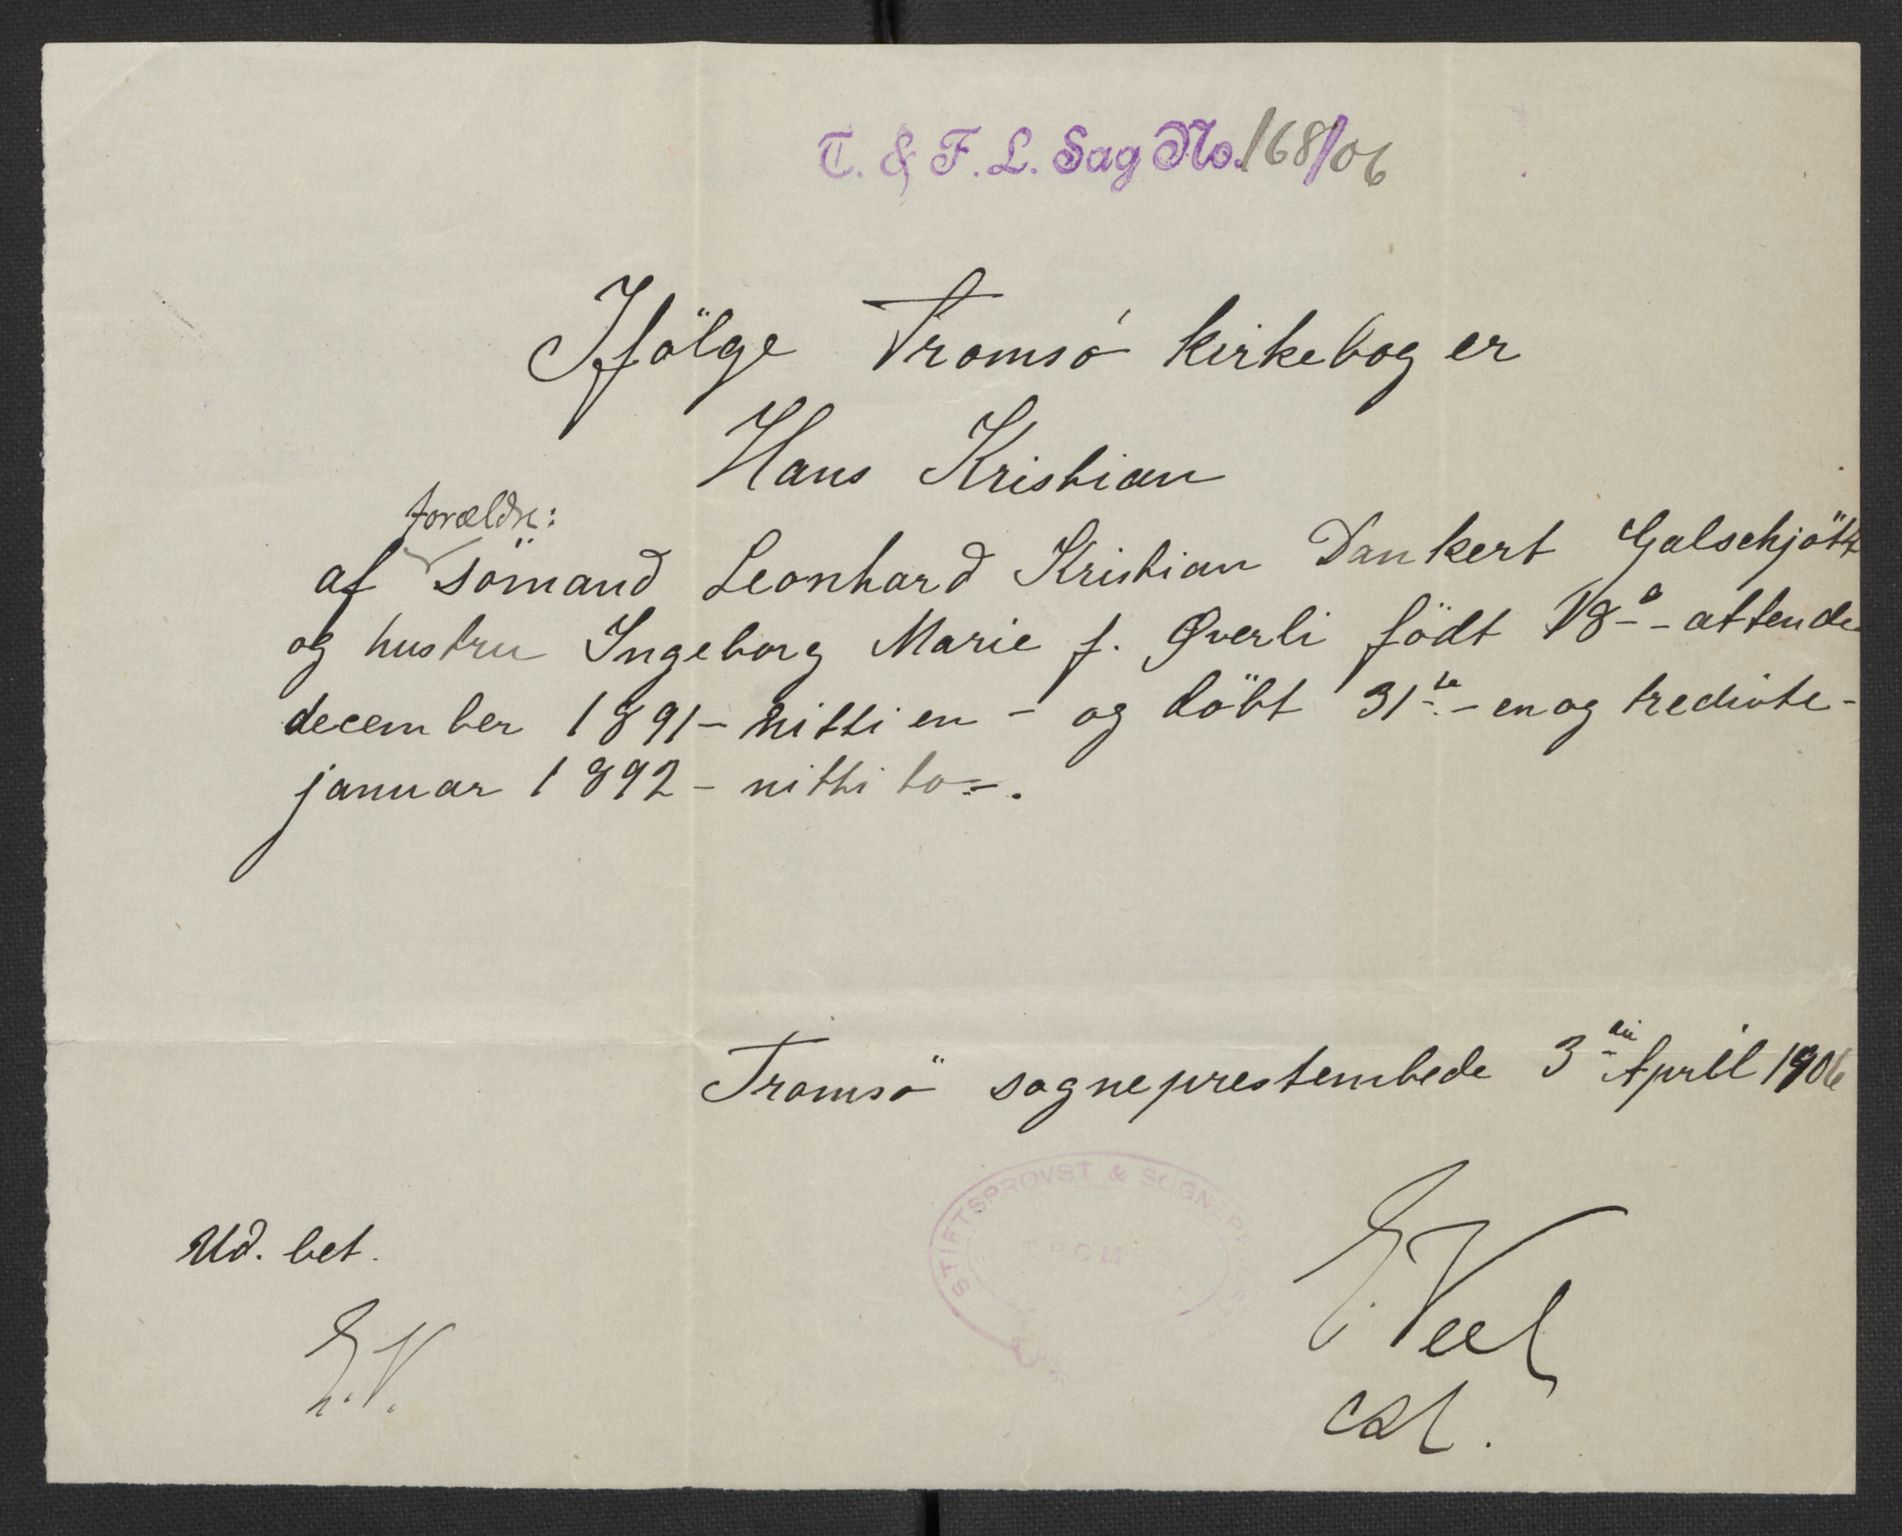 T. & F. L. Sag No. 168/06
Ifölge Tromsö kirkebog er
Hans Kristian
forældre:
af sömand Leonhard Kristian Dankert Galschjött
og hustru Ingeborg Marie f. Øverli födt 18de - attende
december 1891 - nitti en - og döbt 31te - en og tredivte -
januar 1892 - nitti to -.
Tromsö sogneprestembede 3die April 1906
STIFTSPROVST & SOGNEPR
Ud. bet.
E. V.
E. Veel
cst.